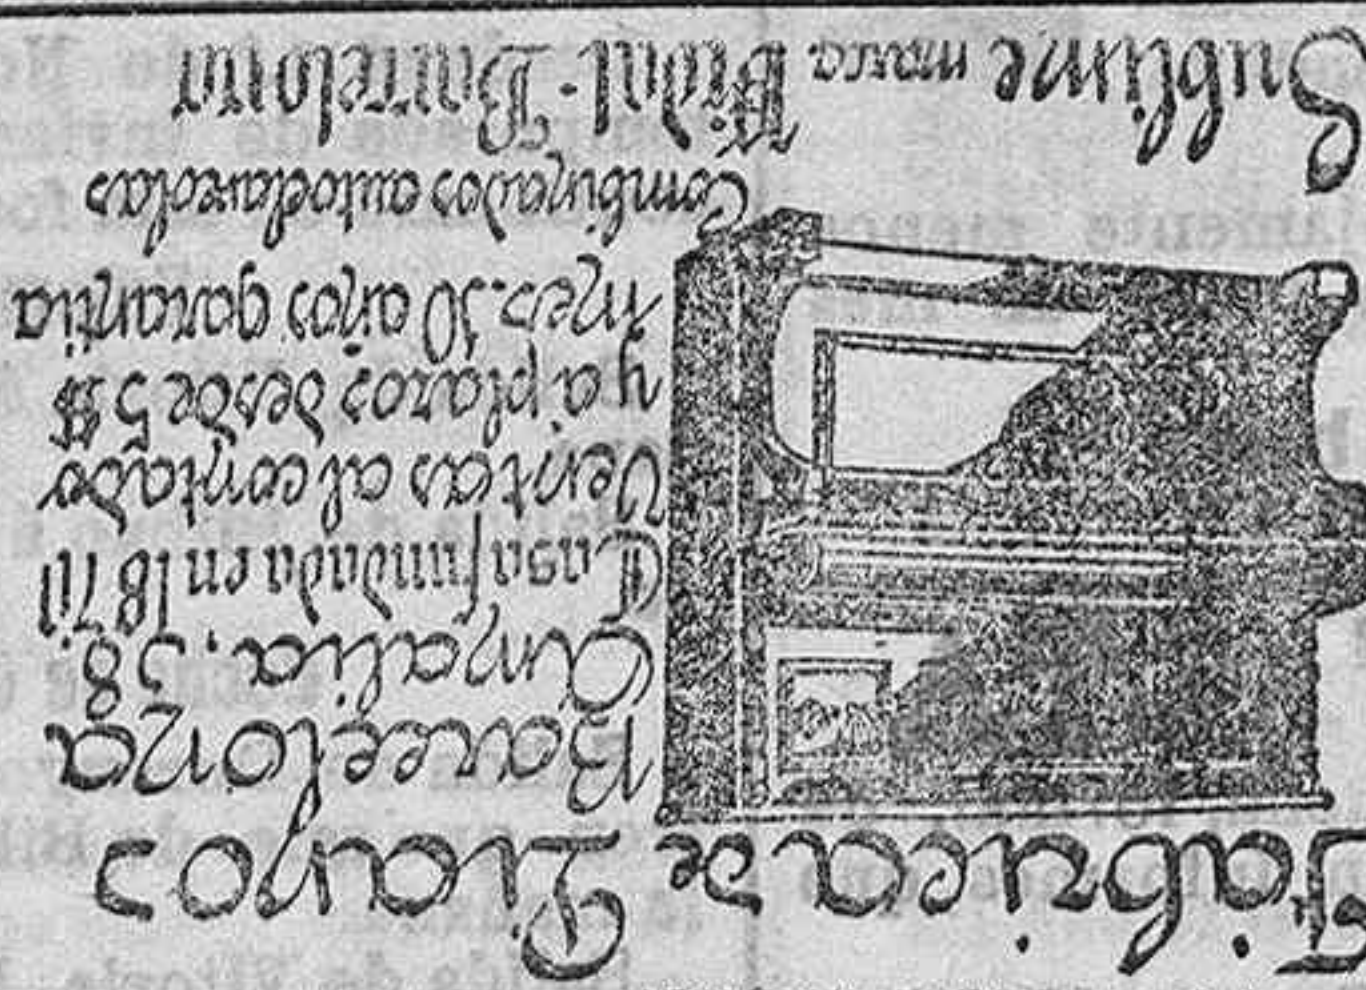 Fábrica de Pianos
Barcelona
Amalia, 38.
Casa fundada en 1870
Ventas al contado
y a plazos desde 5 $
mes. 30 años garantia
Combinados
Sublime marca Vidal-Barcelona